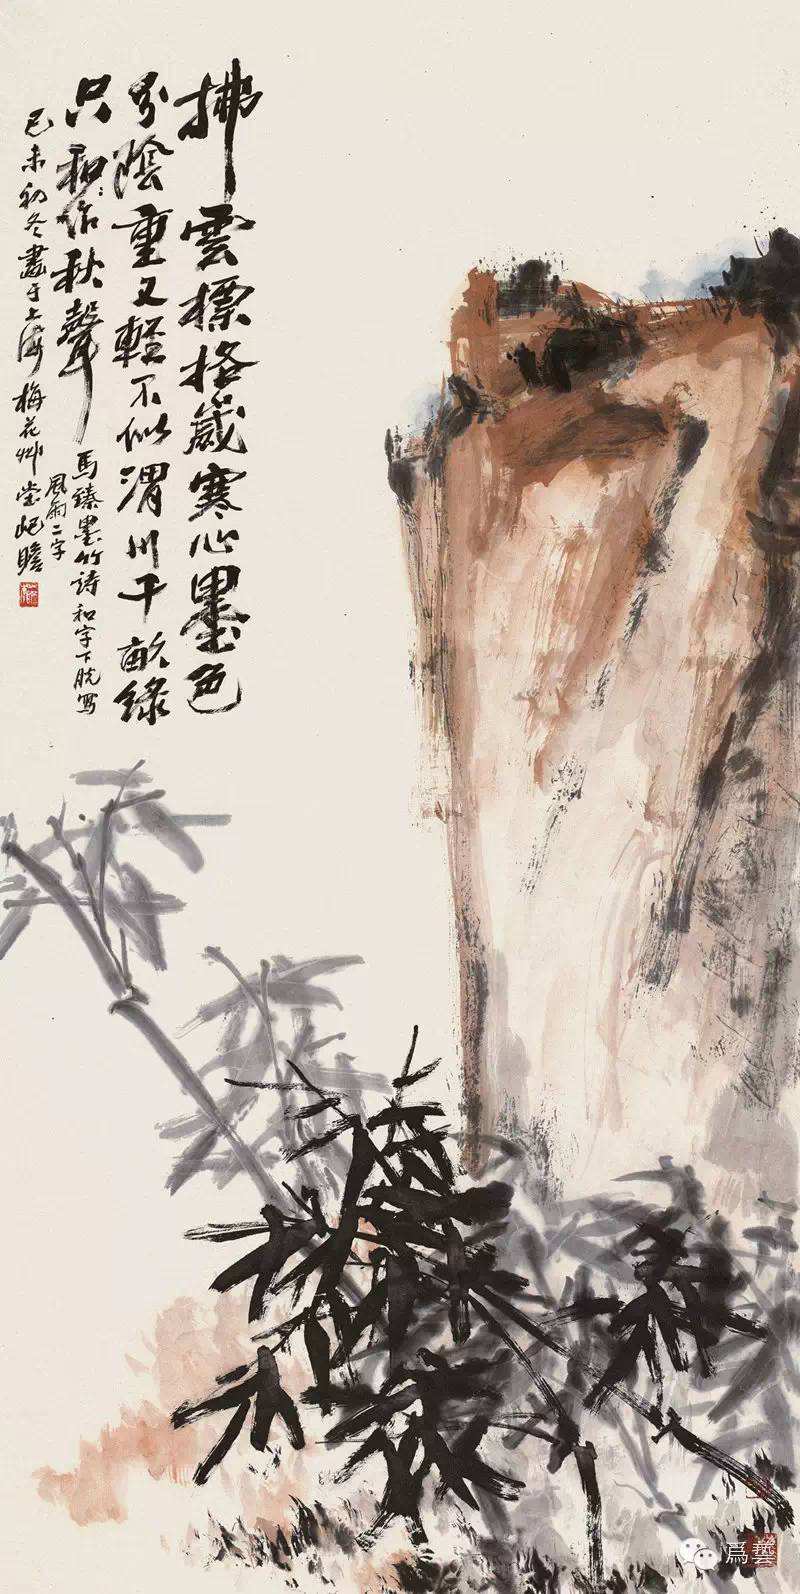 拂雲標格歲寒心墨色
分陰重又輕不似渭川千畝綠
只和作秋聲
馬臻墨竹詩和字下脫寫
風雨二字
己未初冬畫于上海梅花艸堂屺瞻
爲藝